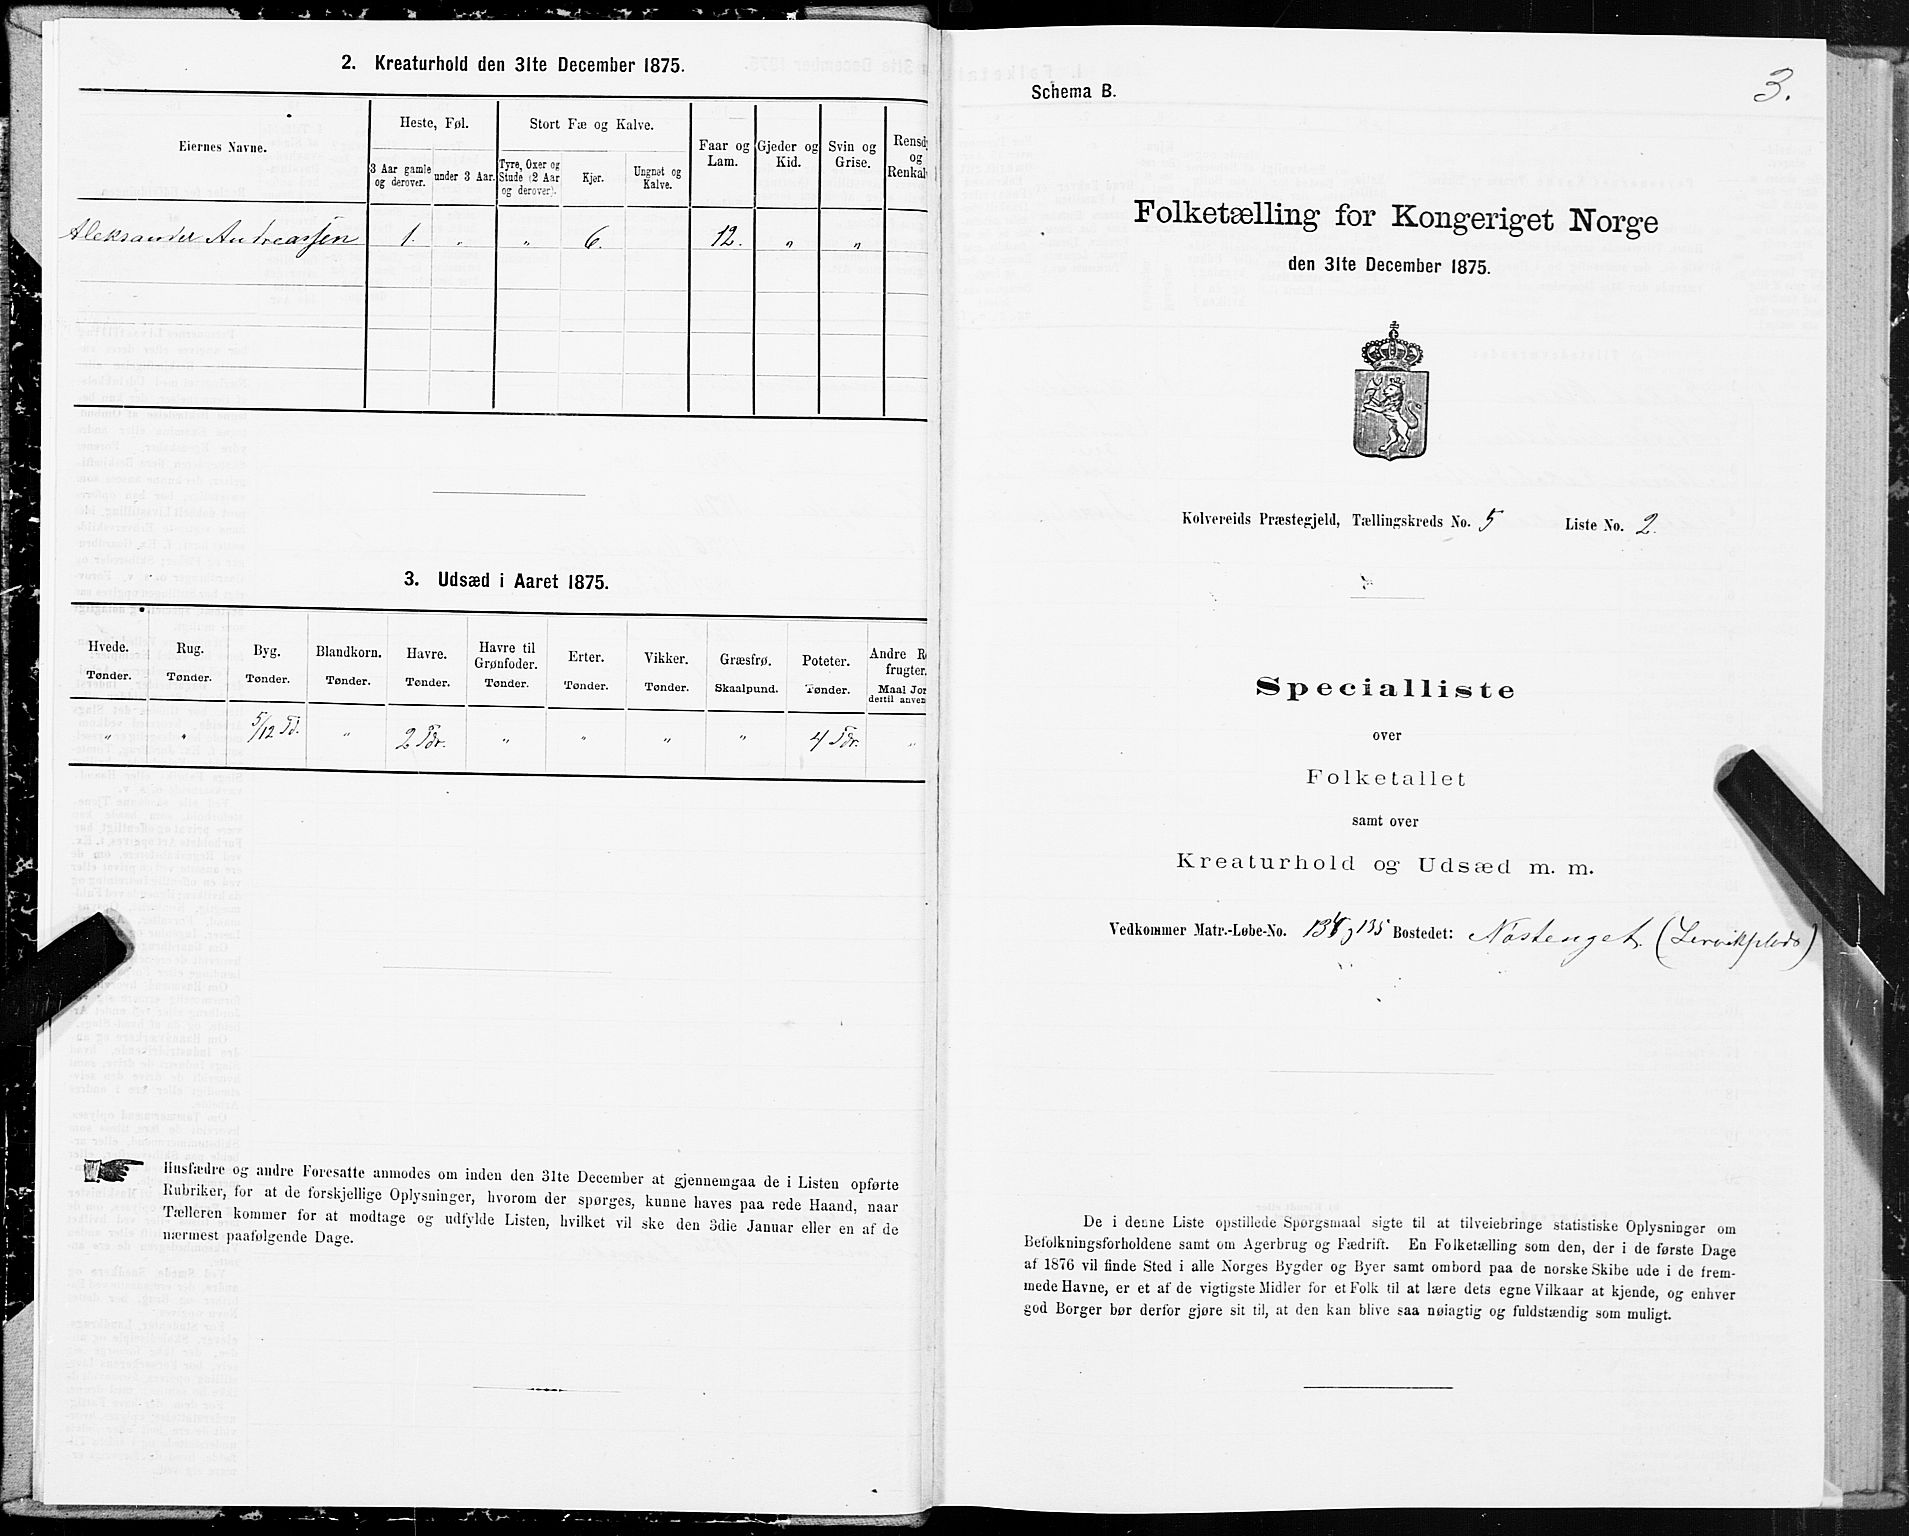 2. Kreaturhold den 31te December 1875.
Eiernes Navne.
Heste, Føl.
Stort Fæ og Kalve.
3 Aar gamle og derover.
under 3 Aar.
Tyre, Oxer og Stude (2 Aar og derover).
Kjør.
Ungnøt og Kalve.
Faar og Lam.
Gjeder og Kid.
Svin og Grise.
Aleksander Andreassen 1. " " 6. 12. " "
3. Udsæd i Aaret 1875.
Hvede. Rug. Byg. Blandkorn. Havre. Havre til Grønfoder. Erter. Vikker. Græsfrø. Poteter. Andre
Tønder. Tønder. Tønder. Tønder. Tønder. Tønder. Tønder. Tønder. Skaalpund. Tønder. Maal
" " 5/12 Td. " 2 Tdr. " " " " 4 Tdr. "
Husfædre og andre Foresatte anmodes om inden den 31te December at gjennemgaa de i Listen opførte
Rubriker, for at de forskjellige Oplysninger, hvorom der spørges, kunne haves paa rede Haand, naar
Tælleren kommer for at modtage og udfylde Listen, hvilket vil ske den 3die Januar eller en af de
nærmest paafølgende Dage.
Schema B.
3.
Folketælling for Kongeriget Norge
den 31te December 1875.
Kolvereids Præstegjeld, Tællingskreds No. 5 Liste No. 2.
Specialliste
over
Folketallet
samt over
Kreaturhold og Udsæd m. m.
Vedkommer Matr.-Løbe-No. 135 Bostedet: Nøstenget.
De i denne Liste opstillede Spørgsmaal sigte til at tilveiebringe statistiske Oplysninger om
Befolkningsforholdene samt om Agerbrug og Fædrift. En Folketælling som den, der i de første Dage
af 1876 vil finde Sted i alle Norges Bygder og Byer samt ombord paa de norske Skibe ude i de frem-
mede Havne, er et af de vigtigste Midler for et Folk til at lære dets egne Vilkaar at kjende, og enhver
god Borger bør derfor gjøre sit til, at den kan blive saa nøiagtig og fuldstændig som muligt.